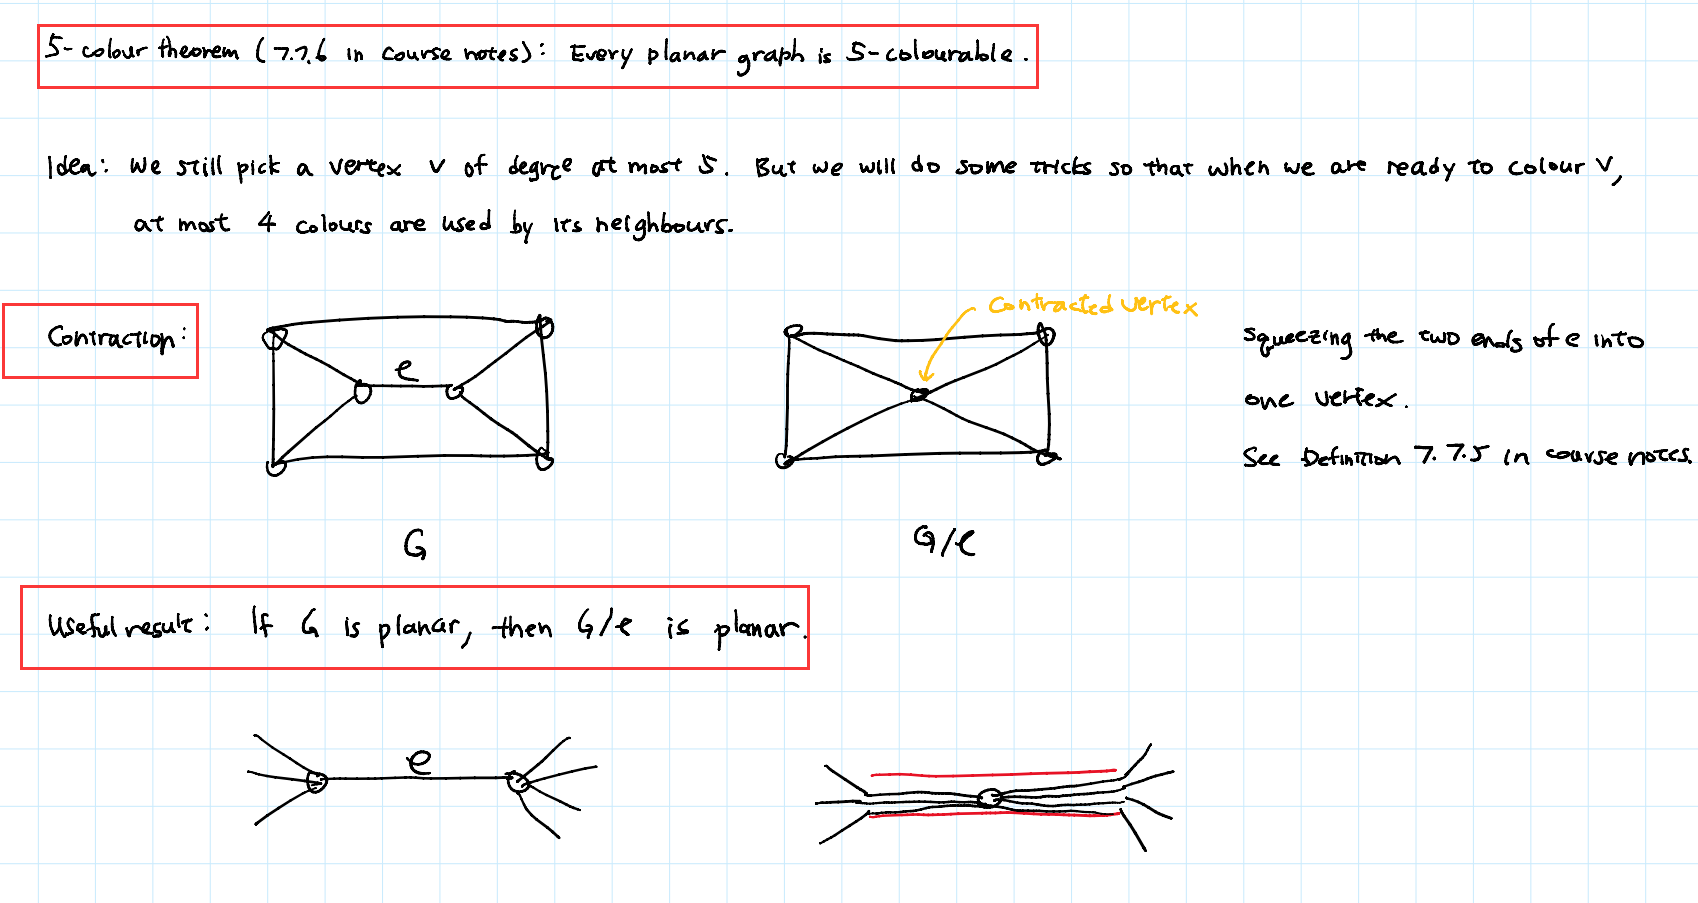 5-colour theorem (7.7.6 in course notes): Every planar graph is 5-colourable.
Idea: We still pick a vertex v of degree at most 5. But we will do some tricks so that when we are ready to colour v,
at most 4 colours are used by its neighbours.
Contraction:
e
G
contracted vertex
G/e
squeezing the two ends of e into
one vertex.
See Definition 7.7.5 in course notes.
Useful result: If G is planar, then G/e is planar.
e